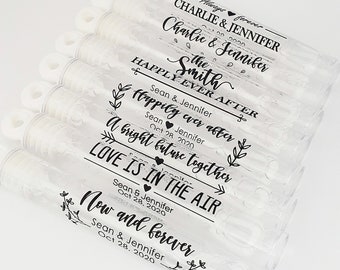 Always & Forever
CHARLIE & JENNIFER
Charlie & Jennifer
the
Smith
HAPPILY EVER AFTER
Sean & Jennifer
Happily ever after
Sean ♥ Jennifer
Oct 28, 2020
A bright future together
LOVE IS IN THE AIR
Sean & Jennifer
Oct 28, 2020
Now and forever
Sean & Jennifer
Oct 28, 2020